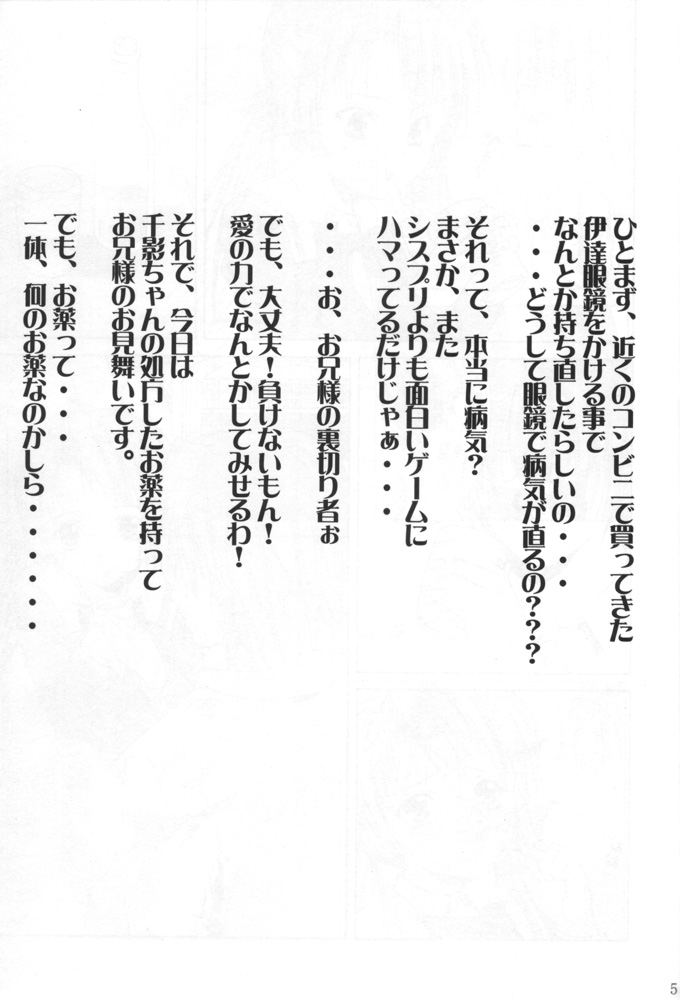 ひとまず、近くのコンビニで買ってきた
伊達眼鏡をかける事で
なんとか持ち直したらしいの・・・
・・・どうして眼鏡で病気が直るの？？？
それって、本当に病気？
まさか、また
シスプリよりも面白いゲームに
ハマってるだけじゃぁ・・・
・・・お、お兄様の裏切り者ぉ
でも、大丈夫！負けないもん！
愛の力でなんとかしてみせるわ！
それで、今日は
千影ちゃんの処方したお薬を持って
お兄様のお見舞いです。
でも、お薬って・・・
一体、何のお薬なのかしら・・・・・・
5